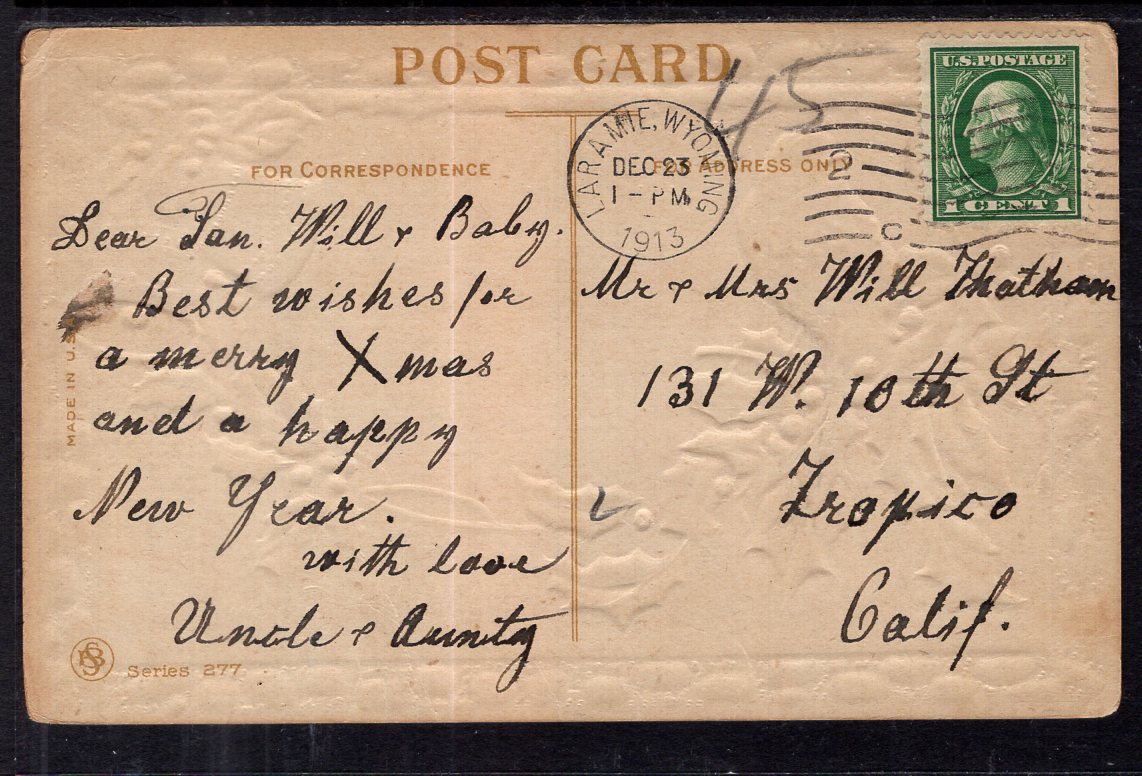 POST CARD
45
U.S. POSTAGE
1 CENT 1
LARAMIE, WYOMING
DEC 23
1 - PM
1913
2
C
FOR CORRESPONDENCE
FOR ADDRESS ONLY
Dear San. Will & Baby.
Best wishes for
a merry Xmas
and a happy
New Year.
with love
Uncle & Aunty
Mr & Mrs Will Thatham
131 W. 10th St
Tropico
Calif.
MADE IN U.S.
Series 277